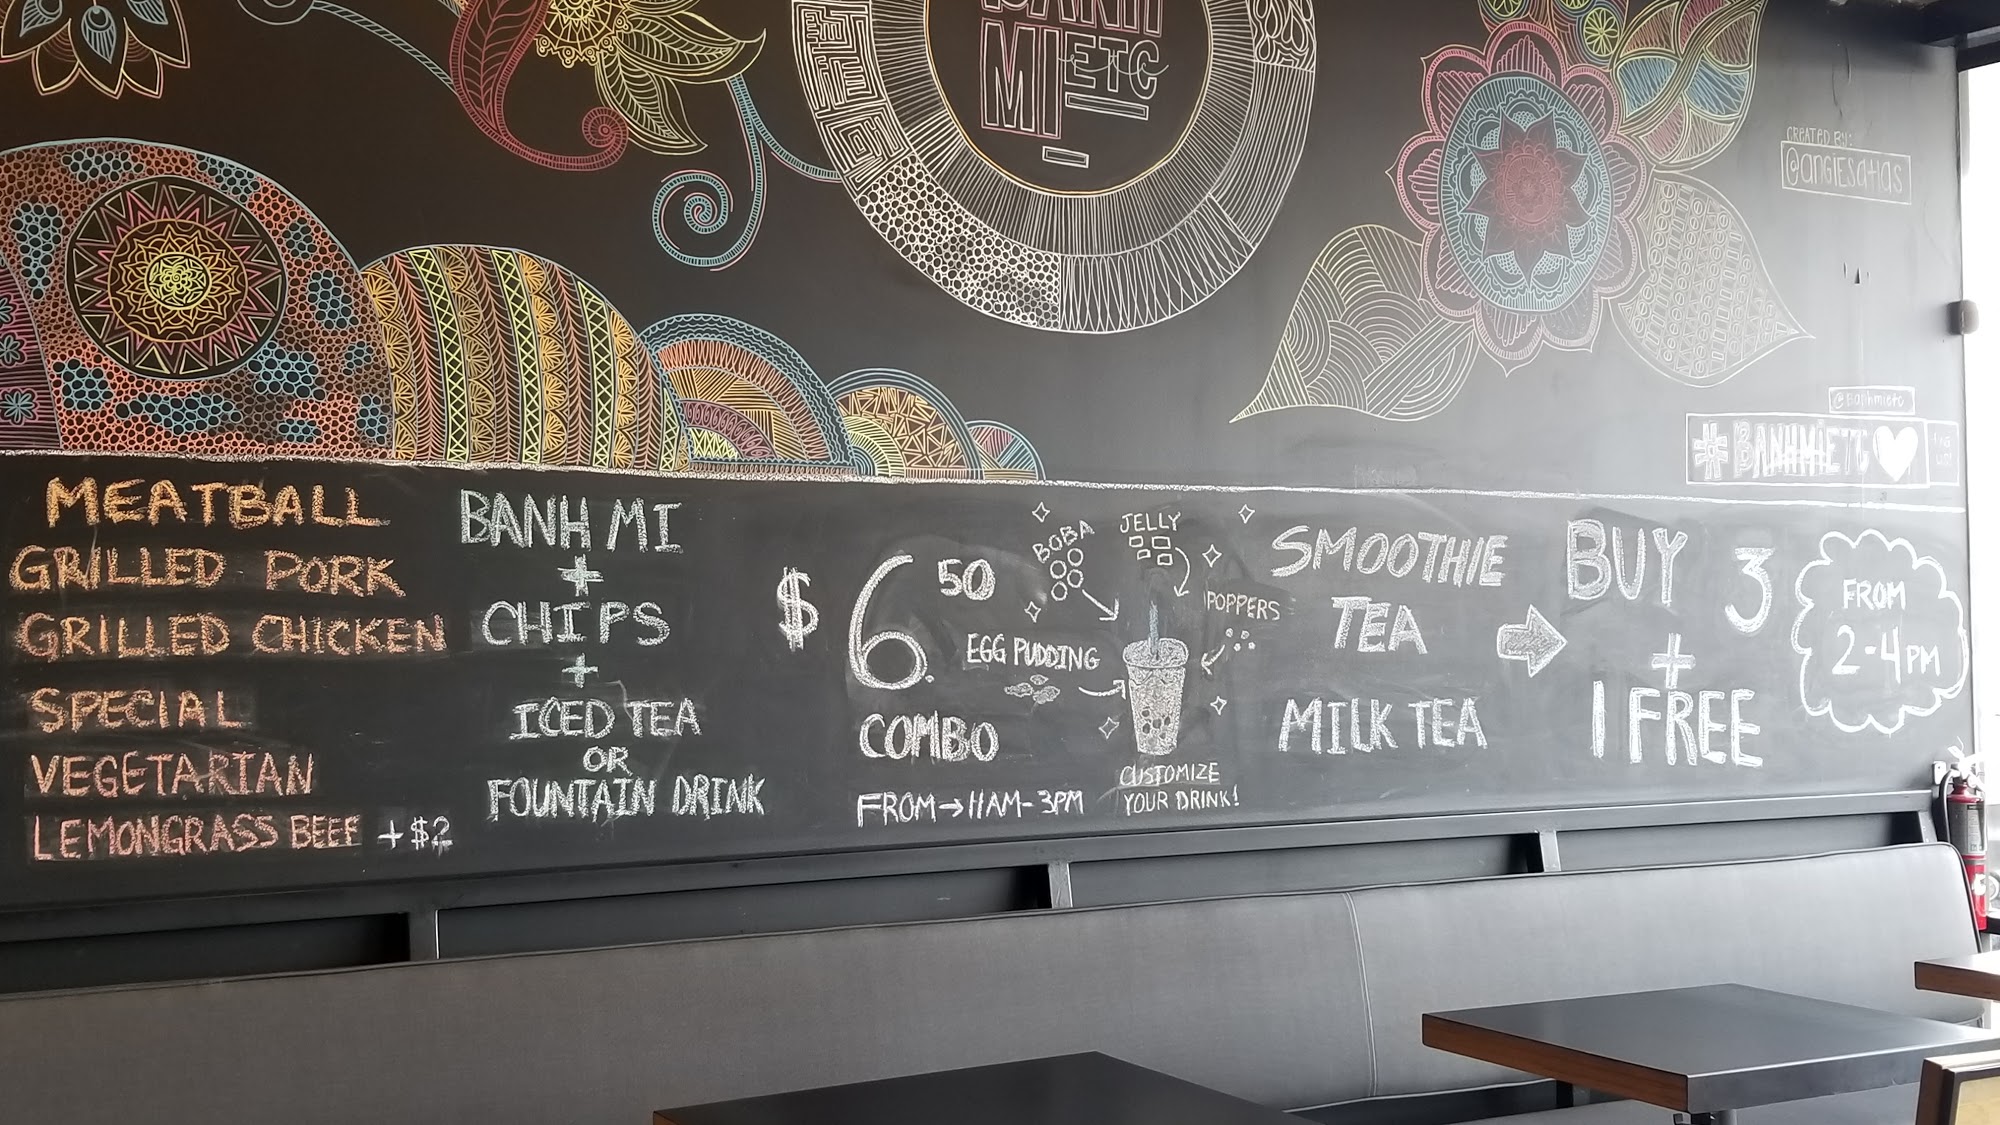 BANH
MI ETC
CREATED BY:
@angiesatlas
@Banhmietc
#BANHMIETC
MEATBALL
GRILLED PORK
GRILLED CHICKEN
SPECIAL
VEGETARIAN
LEMONGRASS BEEF +$2
BANH MI
+
CHIPS
+
ICED TEA
OR
FOUNTAIN DRINK
$6.50
COMBO
FROM→11AM-3PM
BOBA
JELLY
POPPERS
EGG PUDDING
CUSTOMIZE
YOUR DRINK!
SMOOTHIE
TEA
MILK TEA
BUY 3
+
1 FREE
FROM
2-4PM